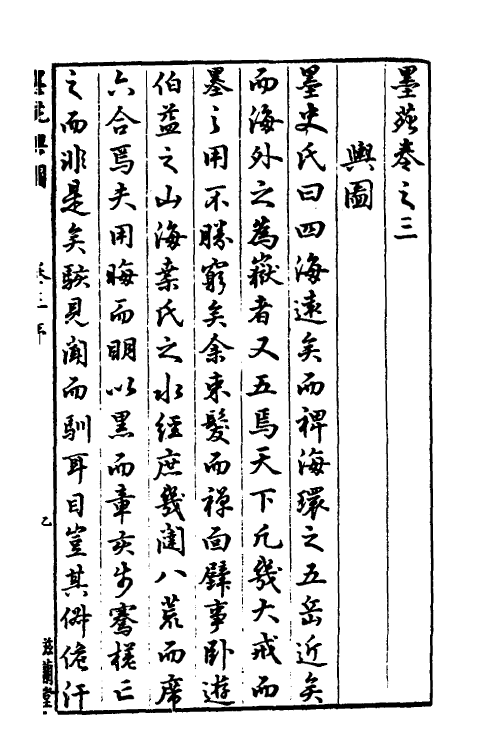 墨苑卷之三
輿圖
墨史氏曰四海遠矣而裨海環之五岳近矣
而海外之為嶽者又五焉天下凡幾大戒而
墨之用不勝窮矣余束髮而禪面壁事臥遊
伯益之山海桒氏之水經庶幾闺八荒而席
六合焉夫用晦而明以黒而章亥步騫槎亡
之而非是矣駭見闻而馴耳目豈其僻倦汗
卷三序
乙
滋蘭堂